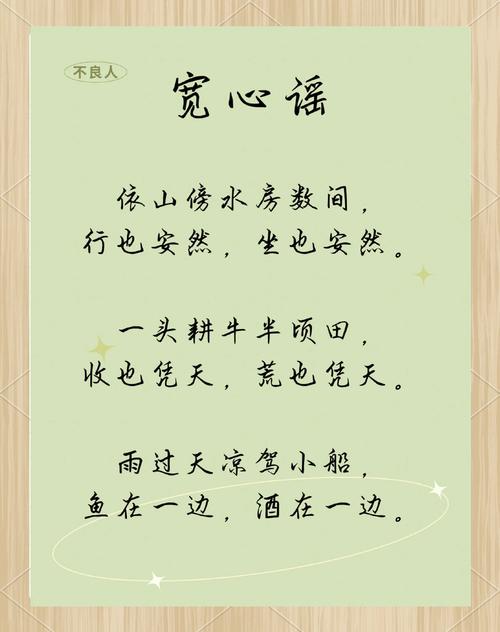 不良人
宽心谣
依山傍水房数间，
行也安然，坐也安然。
一头耕牛半顷田，
收也凭天，荒也凭天。
雨过天凉驾小船，
鱼在一边，酒在一边。